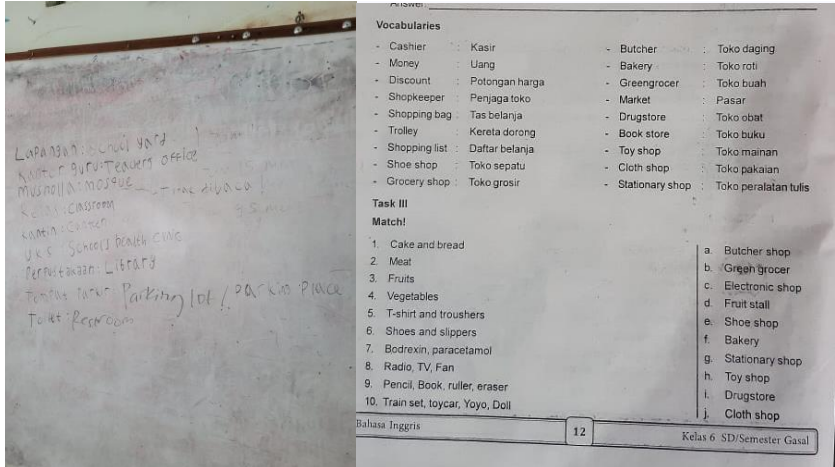 Lapangan: School yard
Kantor guru: Teachers office
musholla: mosque
Kelas: Classroom
Kantin:
UKS: School's health
Perpustakaan: Library
Parking lot / Parkin Place
Toilet: Restroom
Answer
Vocabularies
- Cashier : Kasir
- Money : Uang
- Discount : Potongan harga
- Shopkeeper : Penjaga toko
- Shopping bag : Tas belanja
- Trolley : Kereta dorong
- Shopping list : Daftar belanja
- Shoe shop : Toko sepatu
- Grocery shop : Toko grosir
- Butcher : Toko daging
- Bakery : Toko roti
- Greengrocer : Toko buah
- Market : Pasar
- Drugstore : Toko obat
- Book store : Toko buku
- Toy shop : Toko mainan
- Cloth shop : Toko pakaian
- Stationary shop : Toko peralatan tulis
Task III
Match!
1. Cake and bread
2. Meat
3. Fruits
4. Vegetables
5. T-shirt and troushers
6. Shoes and slippers
7. Bodrexin, paracetamol
8. Radio, TV, Fan
9. Pencil, Book, ruller, eraser
10. Train set, toycar, Yoyo, Doll
a. Butcher shop
b. Green grocer
c. Electronic shop
d. Fruit stall
e. Shoe shop
f. Bakery
g. Stationary shop
h. Toy shop
i. Drugstore
j. Cloth shop
Bahasa Inggris
12
Kelas 6 SD/Semester Gasal